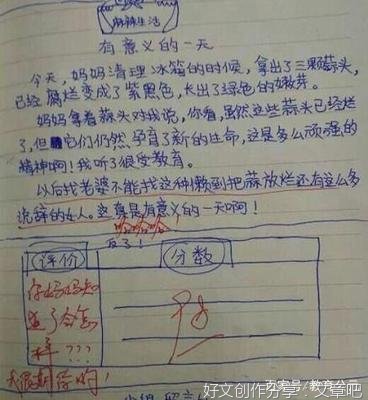 麻辣生活
有意义的一天
今天，妈妈清理冰箱的时候，拿出了三颗蒜头，
已经腐烂变成了紫黑色，长出了绿色的嫩芽。
妈妈拿着蒜头对我说，你看，虽然这些蒜头已经烂
了，但它们仍然孕育了新的生命，这是多么顽强的
精神啊！我听了很受教育。
以后找老婆不能找这种懒到把蒜放烂还有这么多
说辞的女人。这真是有意义的一天啊！
哈哈哈
反了！
评价
分数
你妈妈知
道了会怎
样？？？
优
我很期待哟！
百家号/教育公
好文创作分享：文章吧